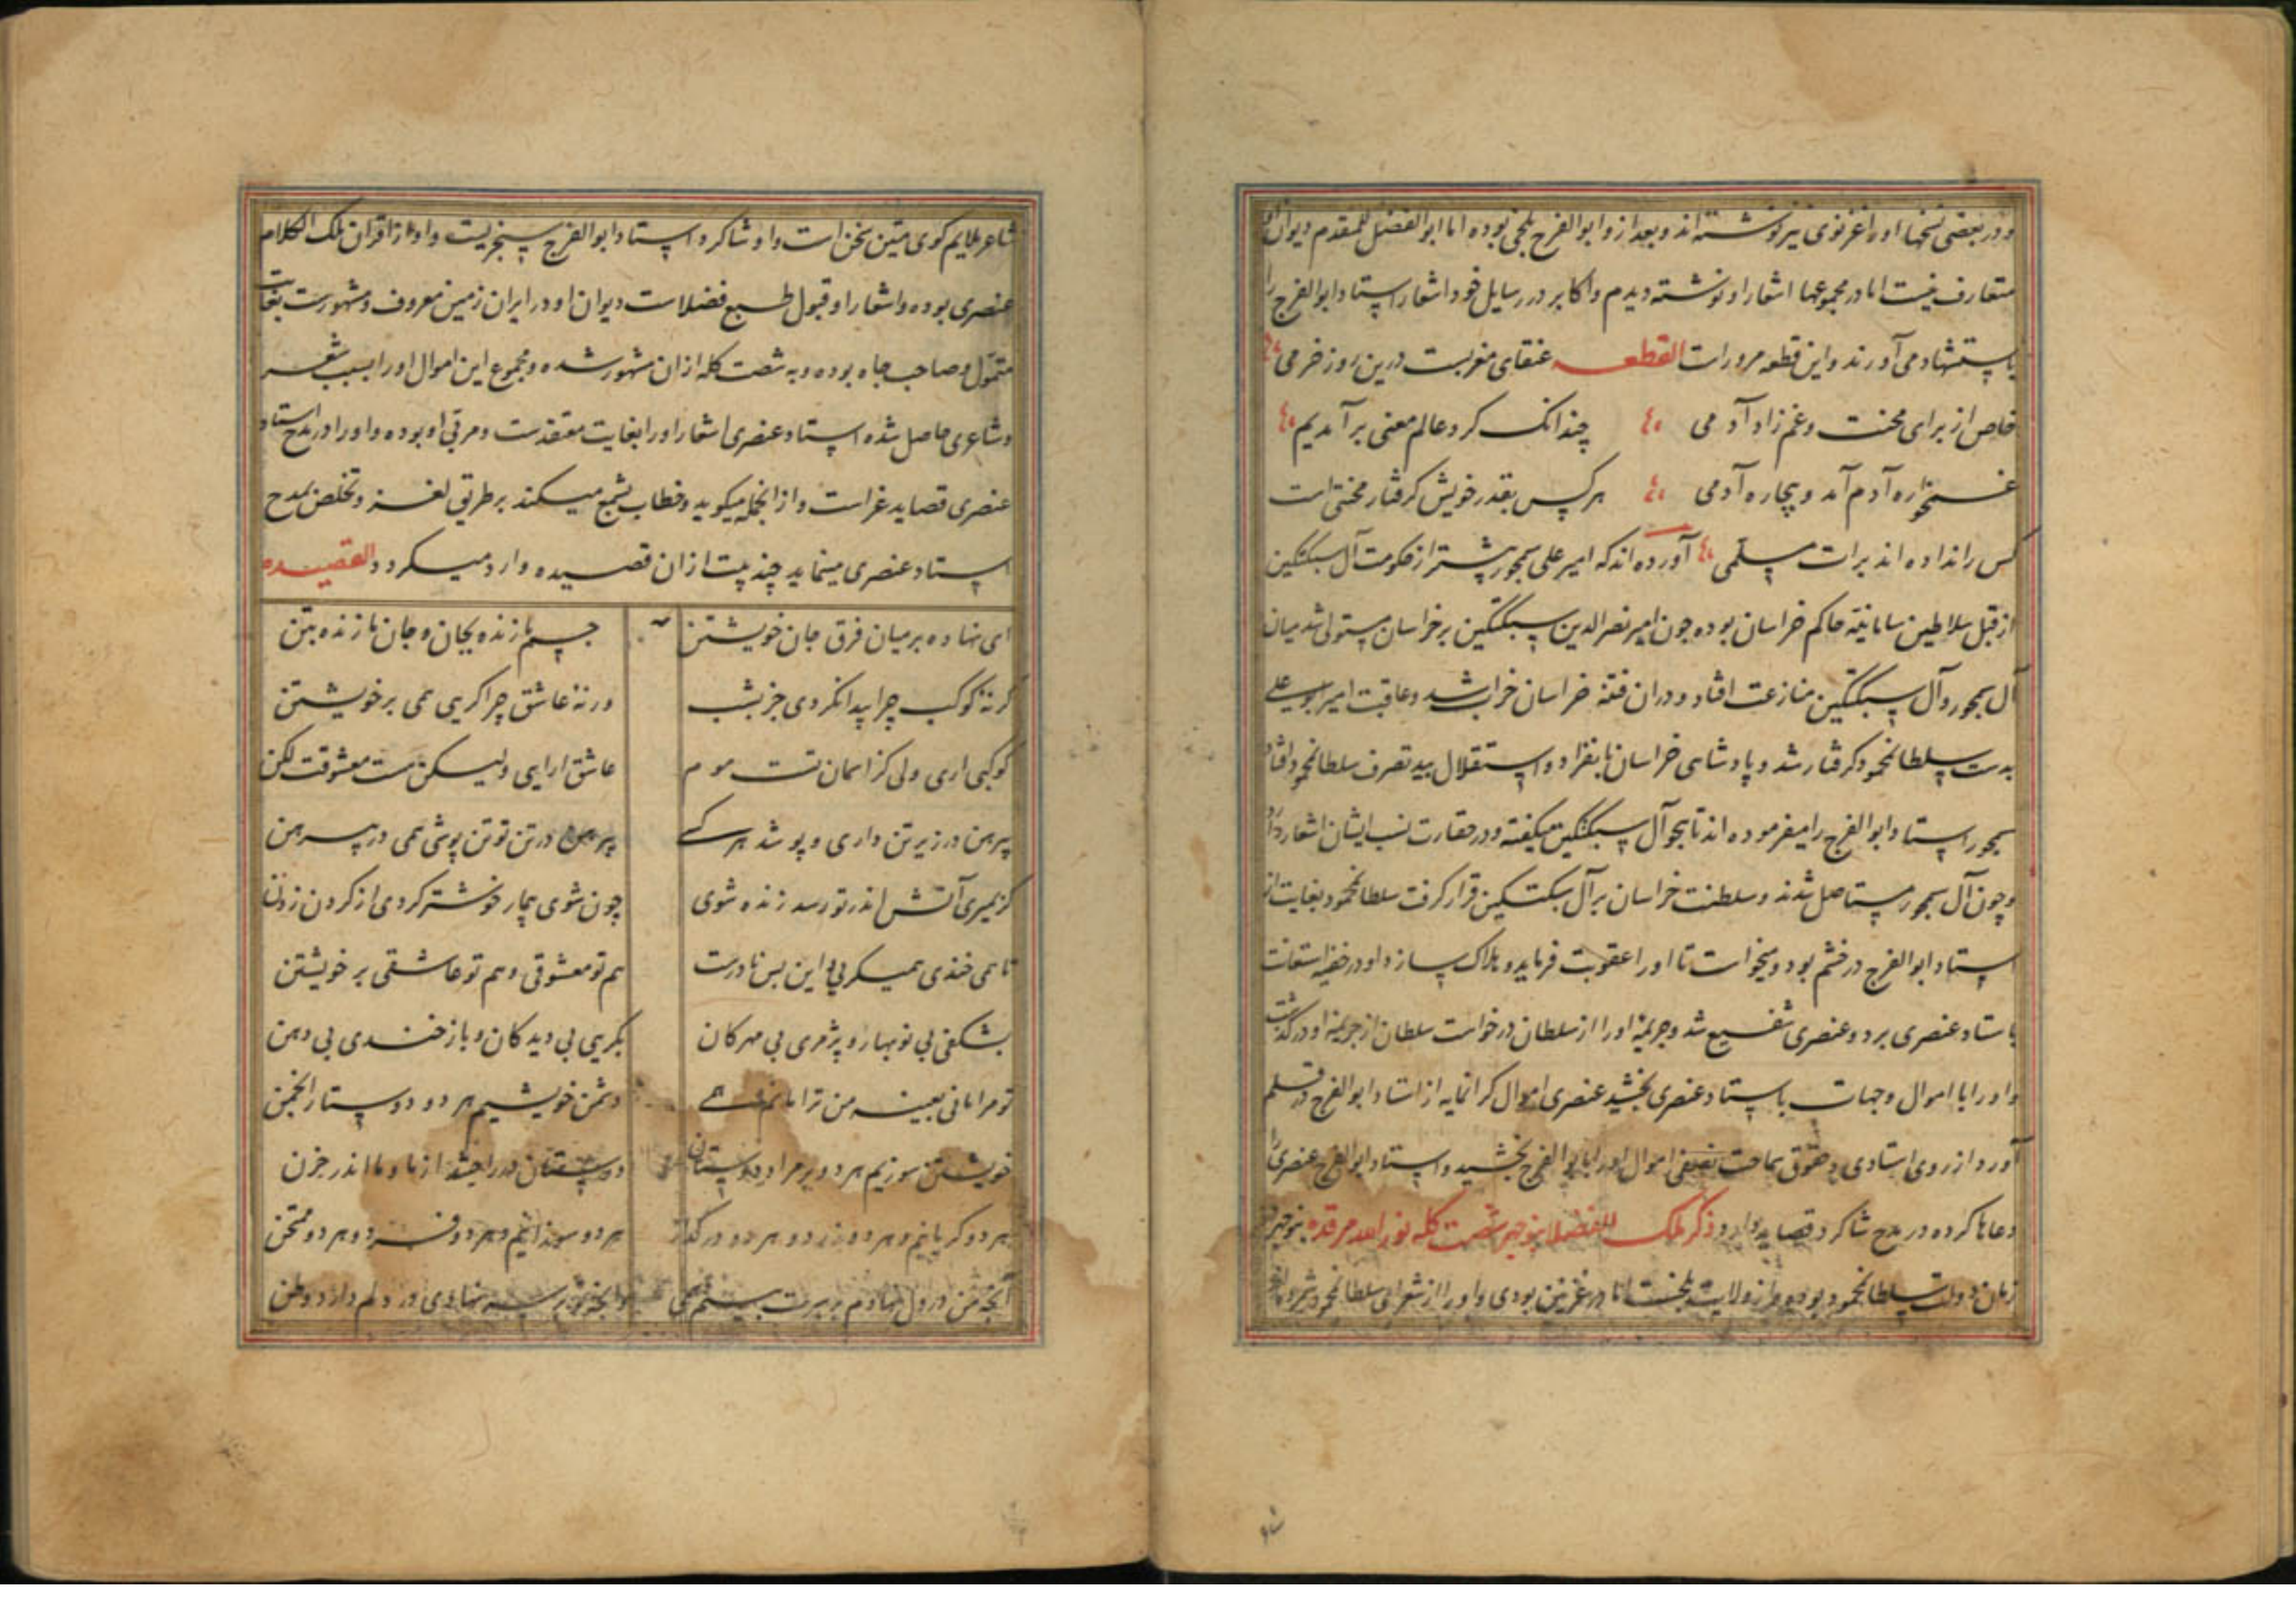 و در بعضی نسخها او را غزنوی نیز نوشته‌اند و بعد ازو ابوالفرج بلخی بوده اما ابوالفضل المقدم دیوان
متعارف نیست اما در مجموعها اشعار او نوشته دیدم و اکابر در رسایل خود اشعار استاد ابوالفرج را
باستشهاد می آورند و این قطعه مرورات القطعه عنقای مغربست درین روز خرمی
خاص از برای محنت و غم زاد آدمی چندانک کرد عالم معنی برآمدیم
غمخواره آدم آمد و بیچاره آدمی هر کس بقدر خویش گرفتار محنتی است
کس را نداده اند برات مسلمی آورده اند که امیر علی سیمجور پیشتر از حکومت آل سبکتکین
از قبل سلاطین سامانیه حاکم خراسان بوده چون امیر نصرالدین سبکتکین بر خراسان مستولی شد میان
آل سیمجور و آل سبکتکین منازعت افتاد و دران فتنه خراسان خراب شد و عاقبت امیر ابوعلی
بدست سلطان محمود گرفتار شد و پادشاهی خراسان بانفراد و استقلال بید تصرف سلطان محمود افتاد
سیمجور استاد ابوالفرج را میفرموده اند تا هجو آل سبکتکین میگفته و در حقارت نسب ایشان اشعار دارد
و چون آل سیمجور مستاصل شدند و سلطنت خراسان بر آل سبکتکین قرار گرفت سلطان محمود بغایت از
استاد ابوالفرج در خشم بود و میخواست تا او را عقوبت فرماید و هلاک سازد او در خفیه استعانت
باستاد عنصری برد و عنصری شفیع شد و جریمه او را از سلطان درخواست سلطان از جریمه او درگذشت
و او را با اموال و جهات باستاد عنصری بخشید عنصری اموال گرانمایه از استاد ابوالفرج در قلم
آورد از روی استادی و حقوق سماحت نصفی اموال او را با بوالفرج بخشید و استاد ابوالفرج عنصری را
دعاها کرده در مدح شاگرد قصاید دارد ذکر ملک الفضلا منوچهر شصت کله نور الله مرقده منوچهر
زمان دولت سلطان محمود بوده و از ولایت بلخست اما در غزنین بودی و او را از شعرای سلطان محمود شمرده‌اند
شاعر
شاعر ملایم گوی متین سخن است و او شاگرد استاد ابوالفرج سنجریست و او از اقران ملک الکلام
عنصری بوده و اشعار او قبول طبع فضلاست دیوان او در ایران زمین معروف و مشهورست بغایت
متمول و صاحب جاه بوده و به شصت کله ازان مشهور شده و مجموع این اموال او را بسبب شعر
و شاعری حاصل شده استاد عنصری اشعار او را بغایت معتقدست و مربی او بوده و او را در مدح استاد
عنصری قصاید غراست و از انجمله میگوید و خطاب بشمع میکند بر طریق لغز و تخلص بمدح
استاد عنصری مینماید چند بیت ازان قصیده وارد میکردد القصیده
ای نهاده بر میان فرق جان خویشتن جسم ما زنده بجان و جان ما زنده بتن
گر نه کوکب چرا پیدا نکردی جز بشب ور نه عاشق چرا گریی همی بر خویشتن
کوکبی اری ولی کز اسمان تست موم عاشق ارایی ولیکن هست معشوقت لکن
پیرهن در زیر تن داری و پوشد هر کسی پیرهن در تن تو تن پوشی همی در پیرهن
کز بمیری آتش اندر تو رسد زنده شوی چون شوی بیمار خوشتر کردی از کردن زدن
تا همی خندی همیکریی و این بس نادرست هم تو معشوقی و هم تو عاشقی بر خویشتن
بشکفی بی نوبهار و پژمری بی مهرکان بکریی بی دیدکان و باز خندی بی دهن
تو مرا مانی بعینه من ترا مانم همی دشمن خویشیم هر دو دوستار انجمن
خویشتن سوزیم هر دو بر مراد دوستان دوستان در راحتند از ما و ما اندر حزن
هر دو گریانیم و هر دو زرد و هر دو در گداز هر دو سوزانیم و هر دو فرد و هر دو ممتحن
آنچه من در دل نهادم بر سرت بینم همی وانچه تو بر سر نهادی در دلم دارد وطن